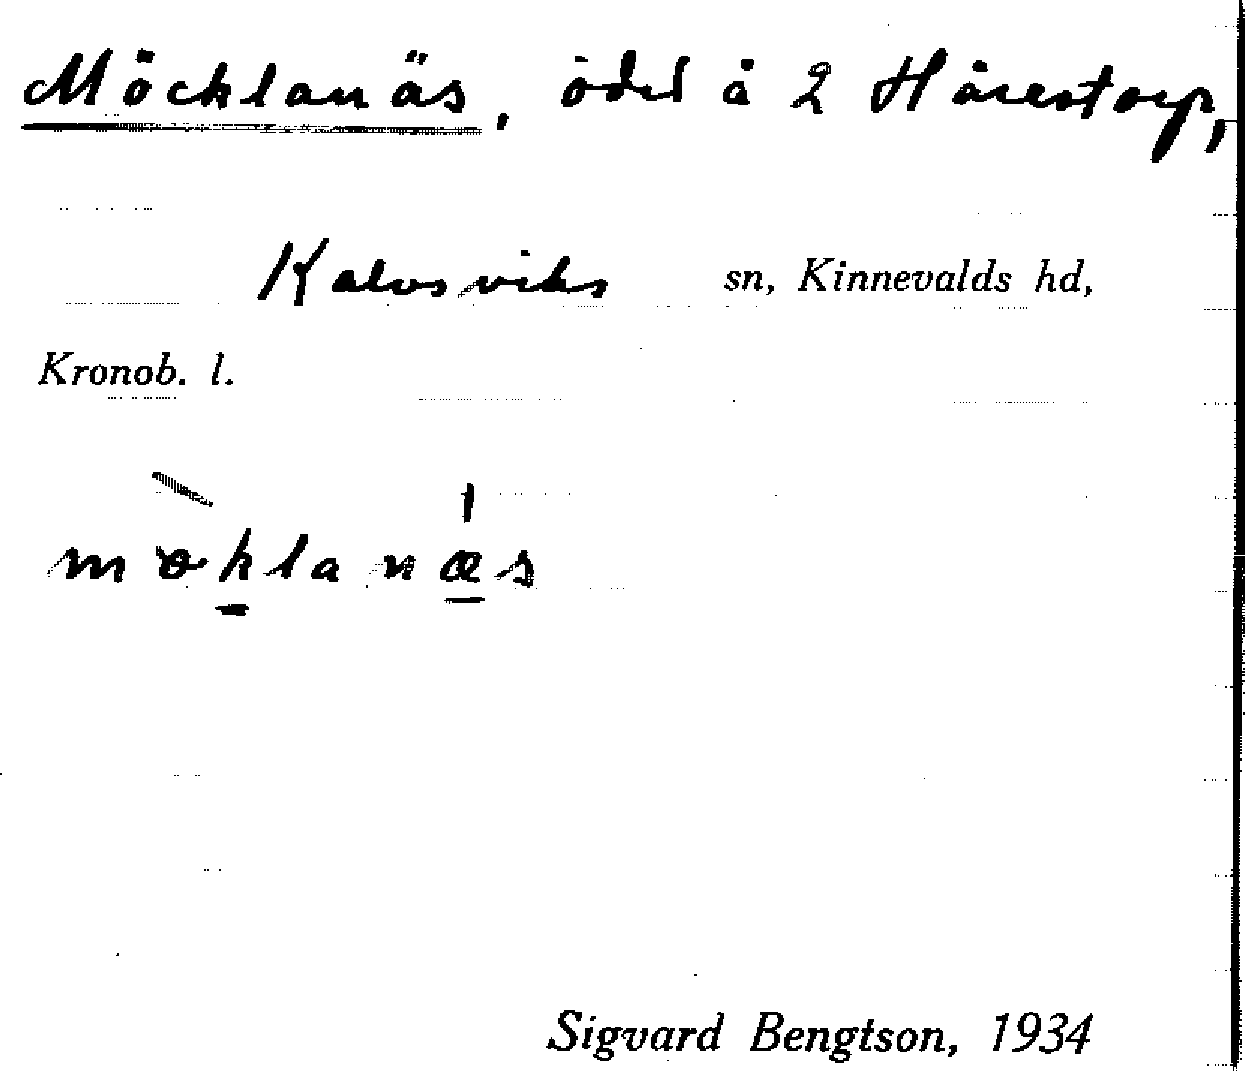 Möcklanäs, ödel å 2 Hårestorp,
Kalvsviks sn, Kinnevalds hd,
Kronob. l.
mòklanǽs
Sigvard Bengtson, 1934